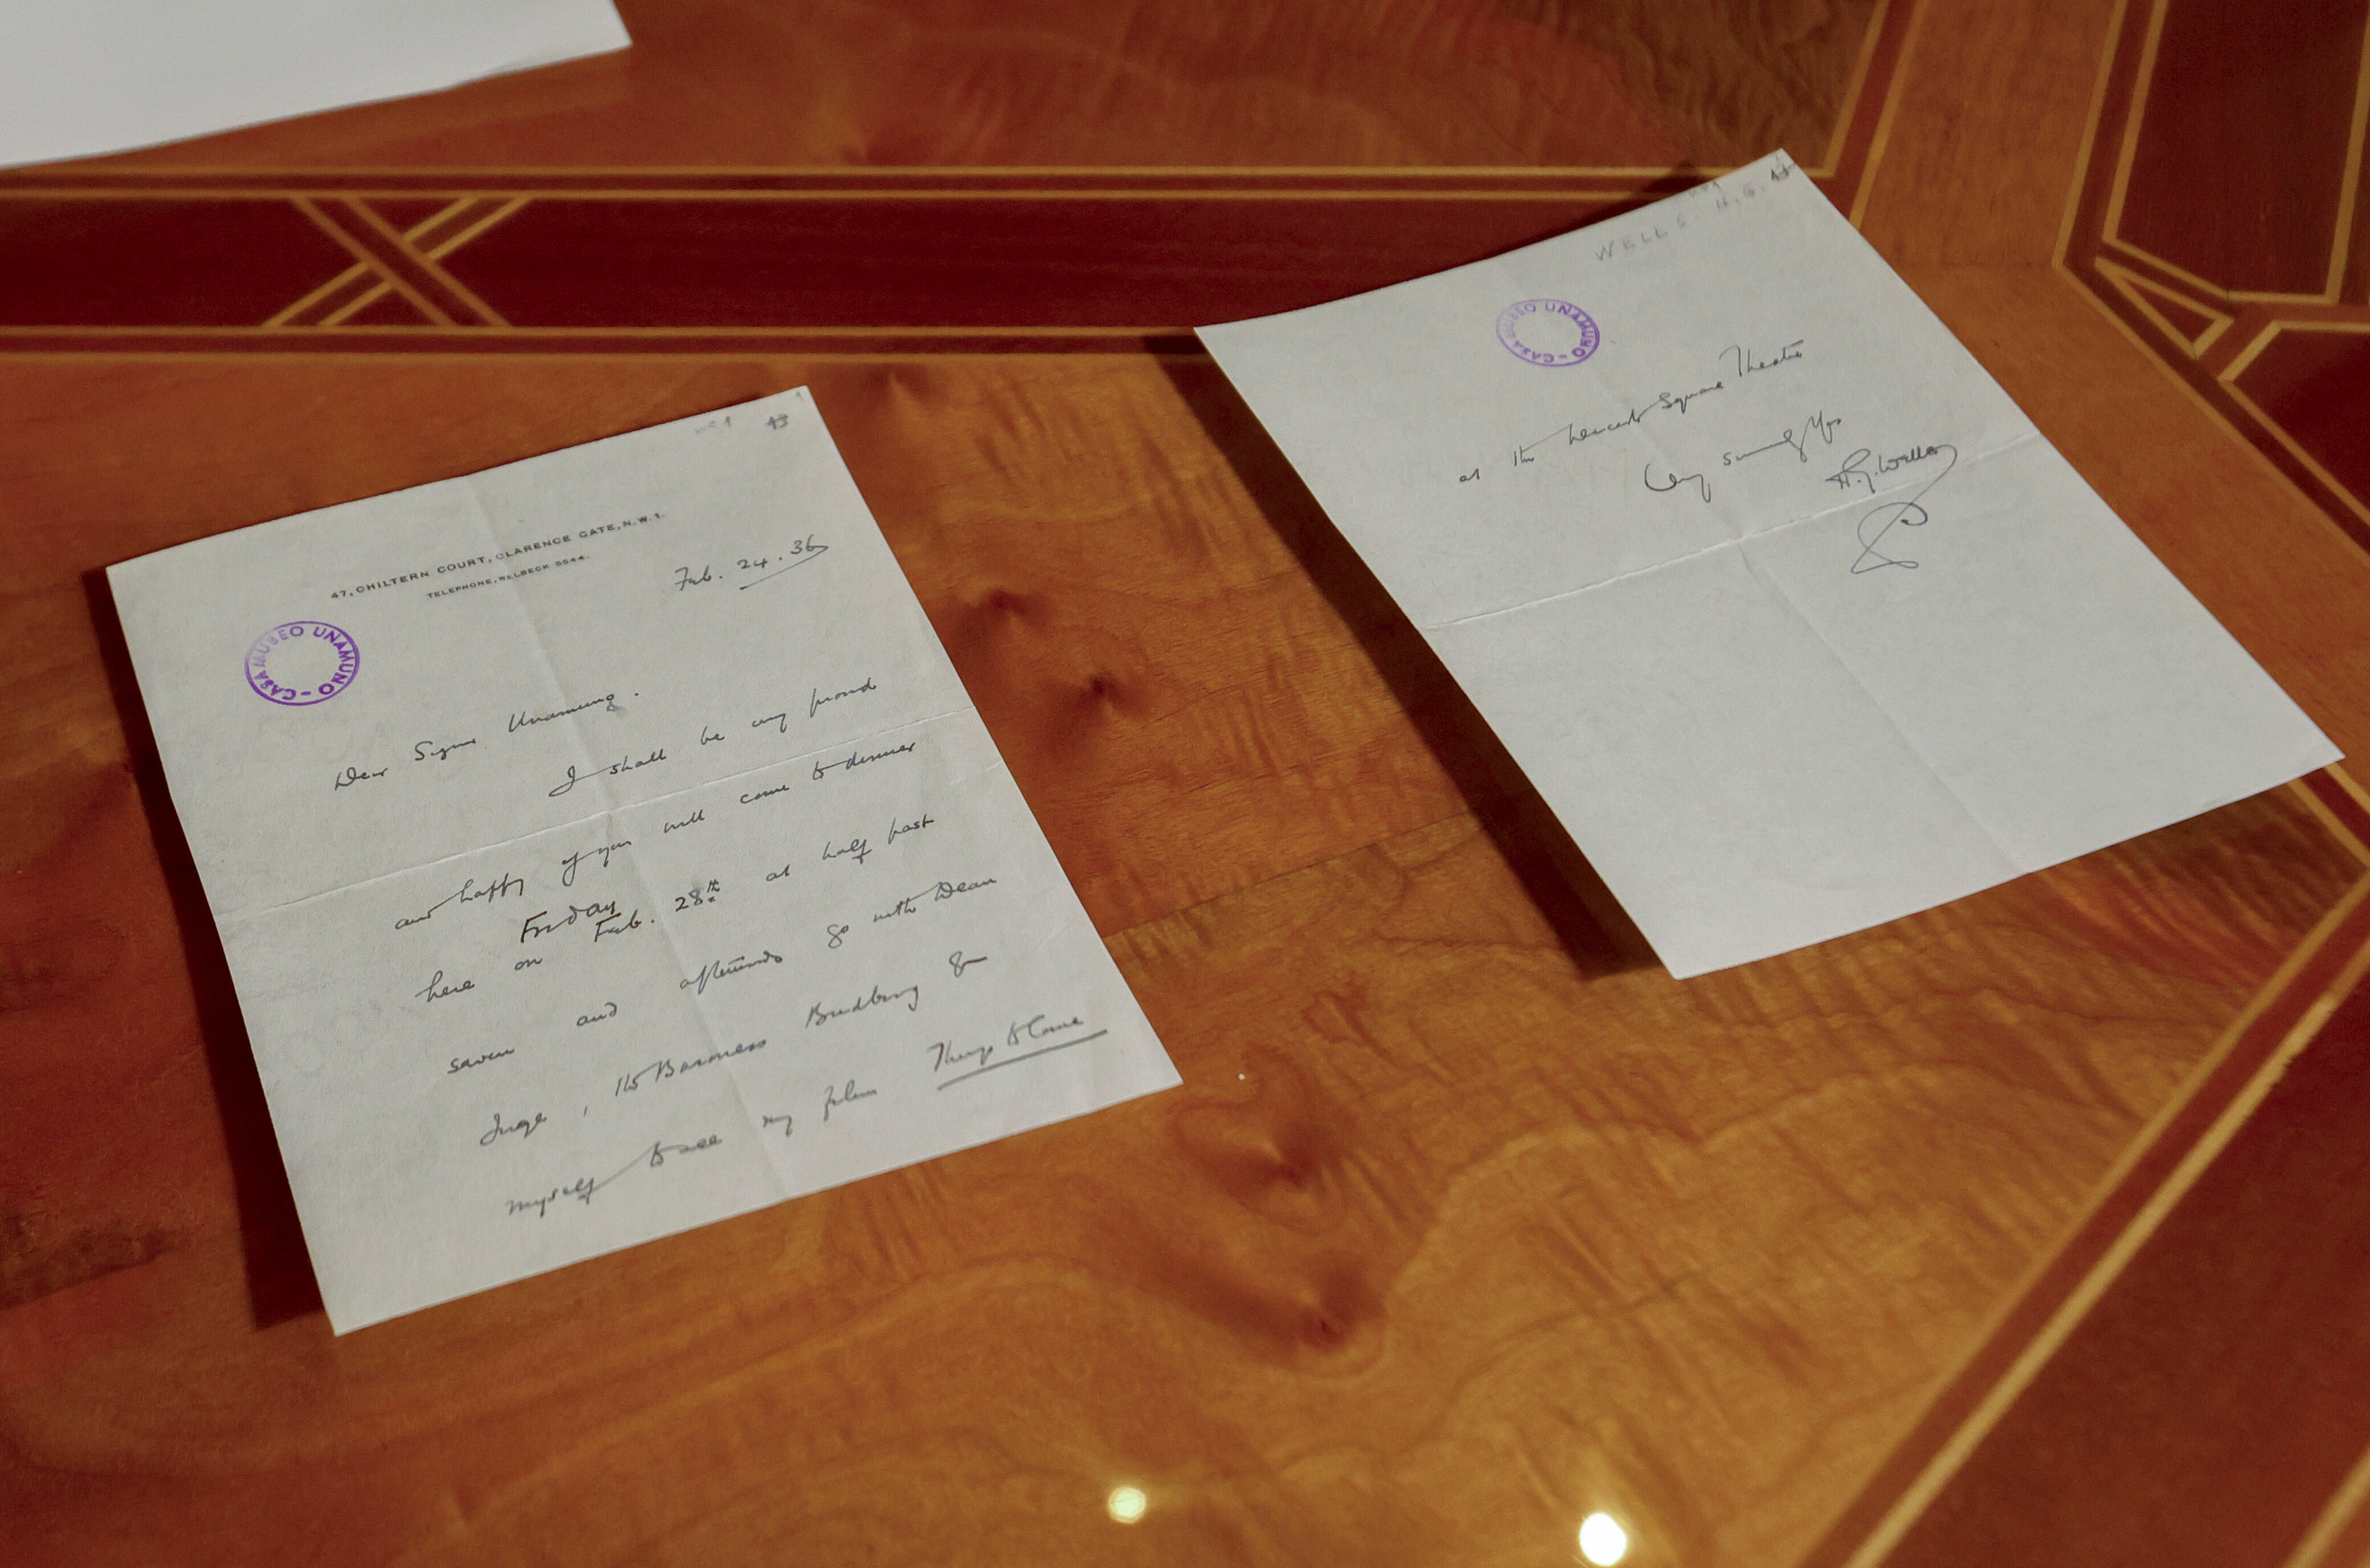 nº 1 13 1
47, CHILTERN COURT, CLARENCE GATE, N.W.1.
TELEPHONE, WELBECK 5544.
Feb. 24. 36
CASA MUSEO UNAMUNO -
Dear Signor Unamuno.
I shall be very proud
and happy if you will come to dinner
Friday
here on Feb. 28th at half past
seven and afterwards go with Dean
Inge, the Baroness Budberg &
myself to see my film Things to Come
WELLS. H.G. 13
CASA MUSEO UNAMUNO -
at the Leicester Square Theatre
Very sincerely Yrs
H.G. Wells